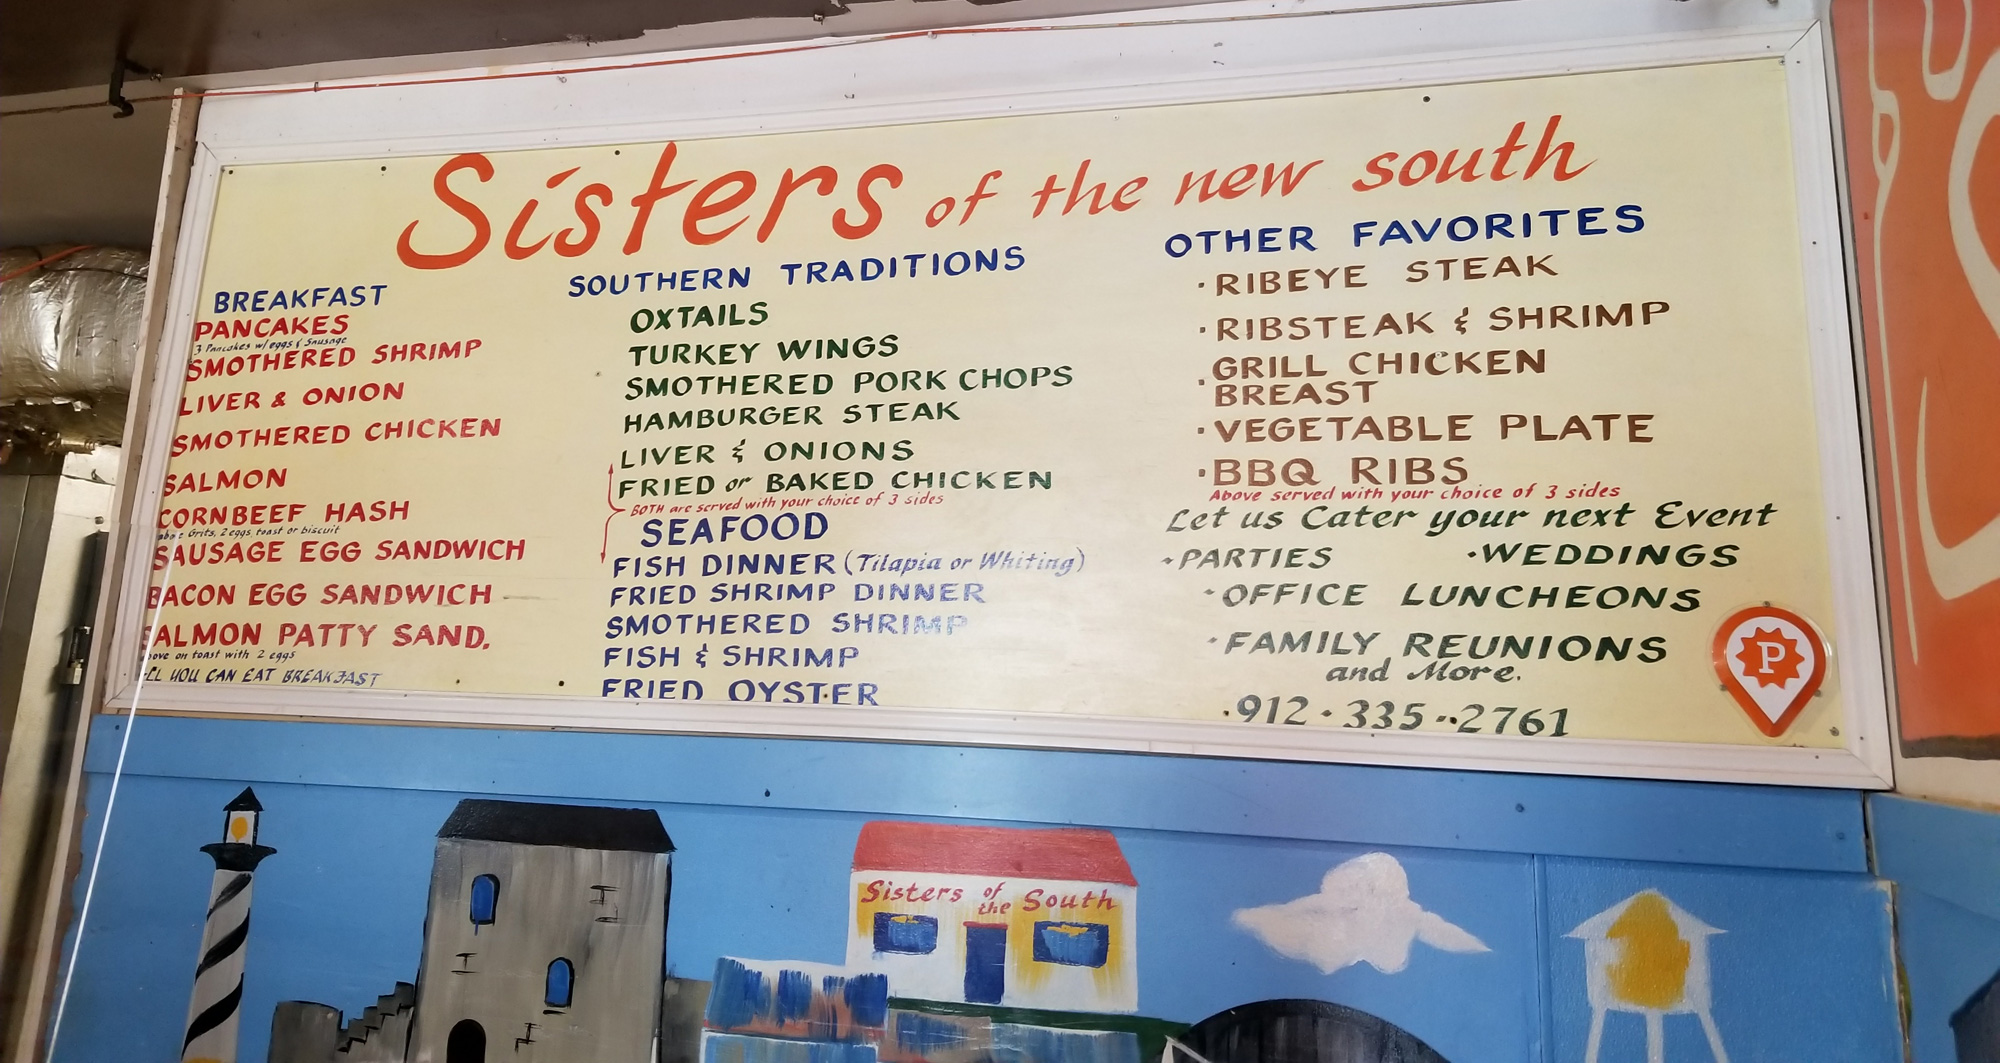 Sisters of the new south
BREAKFAST
PANCAKES
3 Pancakes w/ eggs & Sausage
SMOTHERED SHRIMP
LIVER & ONION
SMOTHERED CHICKEN
SALMON
CORNBEEF HASH
above Grits, 2 eggs toast or biscuit
SAUSAGE EGG SANDWICH
BACON EGG SANDWICH
SALMON PATTY SAND.
on toast with 2 eggs
YOU CAN EAT BREAKFAST
SOUTHERN TRADITIONS
OXTAILS
TURKEY WINGS
SMOTHERED PORK CHOPS
HAMBURGER STEAK
LIVER & ONIONS
FRIED or BAKED CHICKEN
BOTH are served with your choice of 3 sides
SEAFOOD
FISH DINNER (Tilapia or Whiting)
FRIED SHRIMP DINNER
SMOTHERED SHRIMP
FISH & SHRIMP
FRIED OYSTER
OTHER FAVORITES
·RIBEYE STEAK
·RIBSTEAK & SHRIMP
·GRILL CHICKEN
BREAST
·VEGETABLE PLATE
·BBQ RIBS
Above served with your choice of 3 sides
Let us Cater your next Event
·PARTIES ·WEDDINGS
·OFFICE LUNCHEONS
·FAMILY REUNIONS
and More.
·912·335··2761
P
Sisters of the South